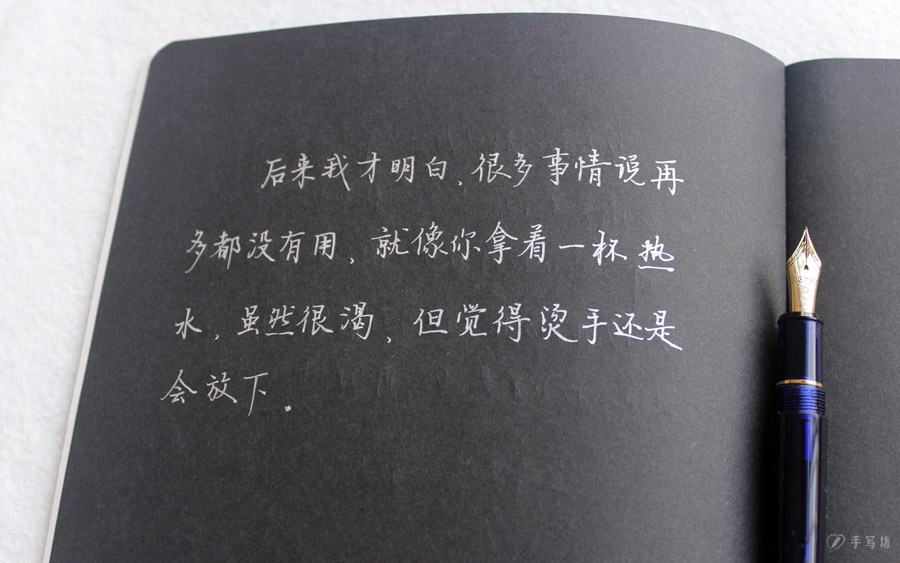 后来我才明白,很多事情说再
多都没有用,就像你拿着一杯热
水,虽然很渴,但觉得烫手还是
会放下。
手写坊